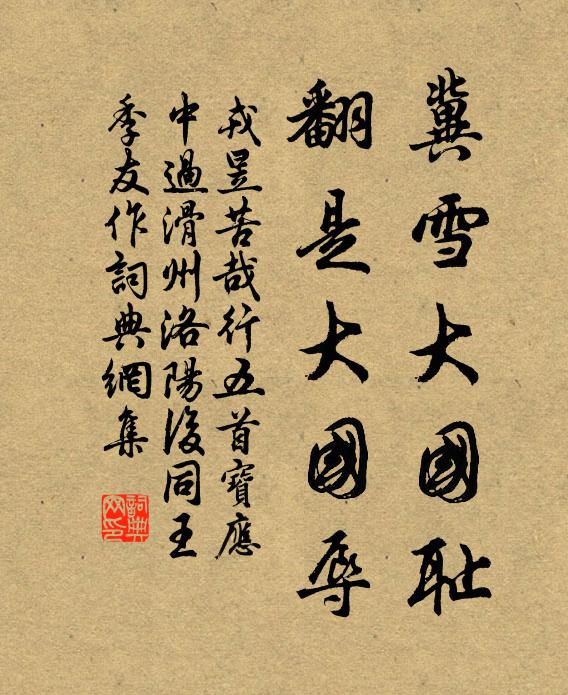 冀雪大國耻
翻是大國辱
戎昱苦哉行五首寶應
中過滑州洛陽後同王
季友作詞典網集
詞典网印